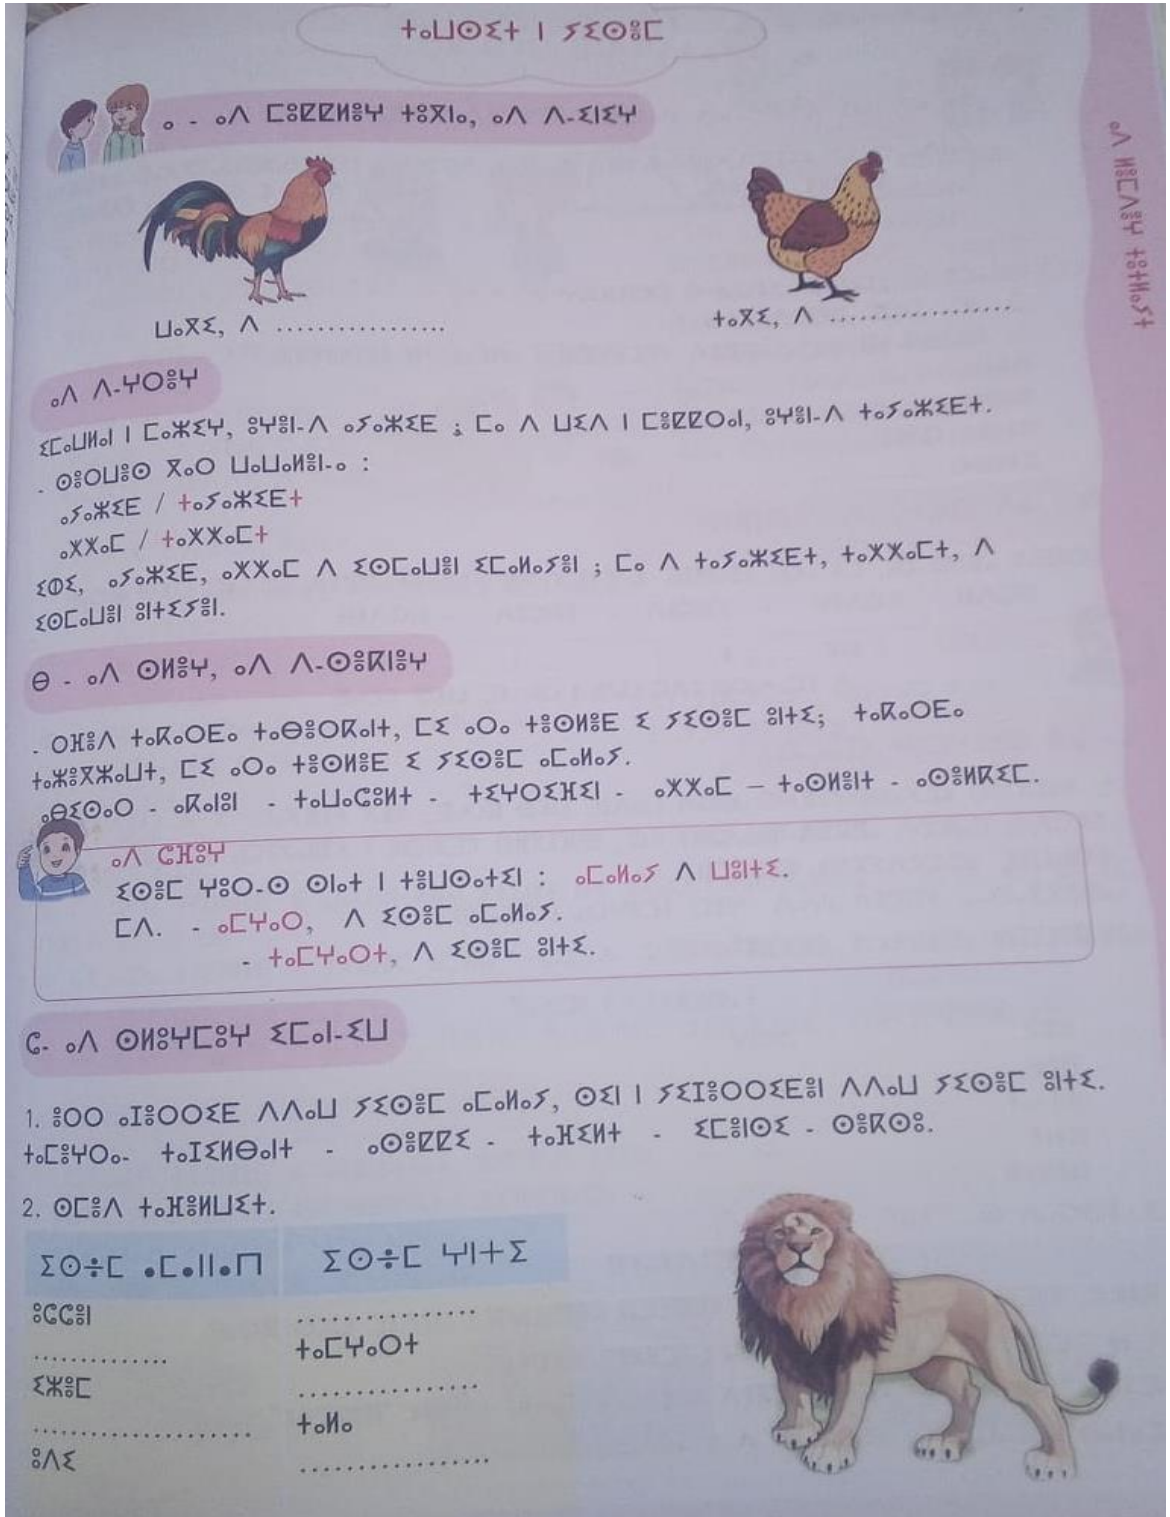 ⵜⴰⵡⵙⵉⵜ ⵏ ⵢⵉⵙⵓⵎ
ⴰ - ⴰⴷ ⵎⵓⵇⵇⵍⵓⵖ ⵜⵓⴳⵏⴰ, ⴰⴷ ⴷ-ⵉⵏⵉⵖ
ⵡⴰⴳⵉ, ⴷ ..................
ⵜⴰⴳⵉ, ⴷ ...................
ⴰⴷ ⵍⵓⵎⴷⵓⵖ ⵜⵓⵜⵍⴰⵢⵜ
ⴰⴷ ⴷ-ⵖⵔⵓⵖ
ⵉⵎⴰⵡⵍⴰⵏ ⵏ ⵎⴰⵣⵉⵖ, ⵓⵖⵓⵏ-ⴷ ⴰⵢⴰⵣⵉⴹ ; ⵎⴰ ⴷ ⵡⵉⴷ ⵏ ⵎⵓⵇⵇⵔⴰⵏ, ⵓⵖⵓⵏ-ⴷ ⵜⴰⵢⴰⵣⵉⴹⵜ.
- ⵙⵓⵔⵡⵓⵙ ⴳⴰⵔ ⵡⴰⵡⴰⵍⵓⵏ-ⴰ :
ⴰⵢⴰⵣⵉⴹ / ⵜⴰⵢⴰⵣⵉⴹⵜ
ⴰⵅⵅⴰⵎ / ⵜⴰⵅⵅⴰⵎⵜ
ⵉⵀⵉ, ⴰⵢⴰⵣⵉⴹ, ⴰⵅⵅⴰⵎ ⴷ ⵉⵙⵎⴰⵡⵓⵏ ⵉⵎⴰⵍⴰⵢⵓⵏ ; ⵎⴰ ⴷ ⵜⴰⵢⴰⵣⵉⴹⵜ, ⵜⴰⵅⵅⴰⵎⵜ, ⴷ
ⵉⵙⵎⴰⵡⵓⵏ ⵓⵏⵜⵉⵢⵓⵏ.
ⴱ - ⴰⴷ ⵙⵍⵓⵖ, ⴰⴷ ⴷ-ⵙⵓⴽⵏⵓⵖ
- ⵔⴼⵓⴷ ⵜⴰⴽⴰⵔⴹⴰ ⵜⴰⴱⵓⵔⴽⴰⵏⵜ, ⵎⵉ ⴰⵔⴰ ⵜⵓⵙⵍⵓⴹ ⵉ ⵢⵉⵙⵓⵎ ⵓⵏⵜⵉ; ⵜⴰⴽⴰⵔⴹⴰ
ⵜⴰⵣⵓⴳⵣⴰⵡⵜ, ⵎⵉ ⴰⵔⴰ ⵜⵓⵙⵍⵓⴹ ⵉ ⵢⵉⵙⵓⵎ ⴰⵎⴰⵍⴰⵢ.
ⴰⴱⵉⵙⴰⵔ - ⴰⴽⴰⵏⵓⵏ - ⵜⴰⵡⴰⵛⵓⵍⵜ - ⵜⵉⵖⵔⵉⴼⵉⵏ - ⴰⵅⵅⴰⵎ – ⵜⴰⵙⵍⵓⵏⵜ - ⴰⵙⵓⵍⴽⵉⵎ.
ⴰⴷ ⵛⴼⵓⵖ
ⵉⵙⵓⵎ ⵖⵓⵔ-ⵙ ⵙⵏⴰⵜ ⵏ ⵜⵓⵡⵙⴰⵜⵉⵏ : ⴰⵎⴰⵍⴰⵢ ⴷ ⵡⵓⵏⵜⵉ.
ⵎⴷ. - ⴰⵎⵖⴰⵔ, ⴷ ⵉⵙⵓⵎ ⴰⵎⴰⵍⴰⵢ.
- ⵜⴰⵎⵖⴰⵔⵜ, ⴷ ⵉⵙⵓⵎ ⵓⵏⵜⵉ.
ⵛ- ⴰⴷ ⵙⵍⵓⵖⵎⵓⵖ ⵉⵎⴰⵏ-ⵉⵡ
1. ⵓⵔⵔ ⴰⵊⵓⵔⵔⵉⴹ ⴷⴷⴰⵡ ⵢⵉⵙⵓⵎ ⴰⵎⴰⵍⴰⵢ, ⵙⵉⵏ ⵏ ⵢⵉⵊⵓⵔⵔⵉⴹⵓⵏ ⴷⴷⴰⵡ ⵢⵉⵙⵓⵎ ⵓⵏⵜⵉ.
ⵜⴰⵎⵓⵖⵔⴰ- ⵜⴰⵊⵉⵍⴱⴰⵏⵜ - ⴰⵙⵓⵇⵇⵉ - ⵜⴰⴼⵉⵍⵜ - ⵉⵎⵓⵏⵙⵉ - ⵙⵓⴽⵙⵓ.
2. ⵙⵎⵓⴷ ⵜⴰⴼⵓⵍⵡⵉⵜ.
ⵉⵙ÷ⵎ •ⵎ•ⵍ•ⵢ
ⵉⵙ÷ⵎ ⵖⵏⵜⵉ
ⵓⵛⵛⵓⵏ ................
.............. ⵜⴰⵎⵖⴰⵔⵜ
ⵉⵣⵓⵎ ................
...................... ⵜⴰⵍⴰ
ⵓⴷⵉ ..................